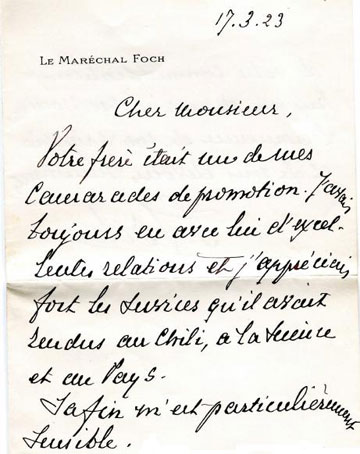 17.3.23
LE MARÉCHAL FOCH
Cher Monsieur,
Votre frère était un de mes
Camarades de promotion. J'avais
toujours eu avec lui d'excel-
lentes relations et j'appréciais
fort les services qu'il avait
rendus au Chili, à la Science
et au Pays.
Sa fin m'est particulièrement
sensible.